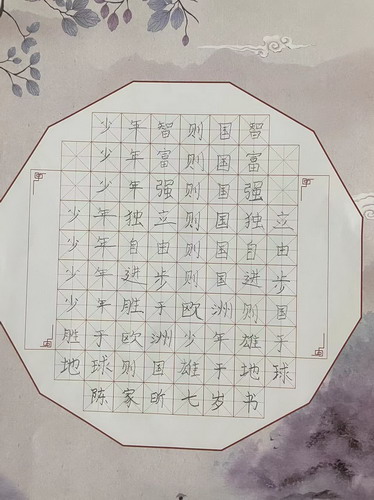 少年智则国智
少年富则国富
少年强则国强
少年独立则国独立
少年自由则国自由
少年进步则国进步
少年胜于欧洲则国
胜于欧洲少年雄于
地球则国雄于地球
陈家昕七岁书